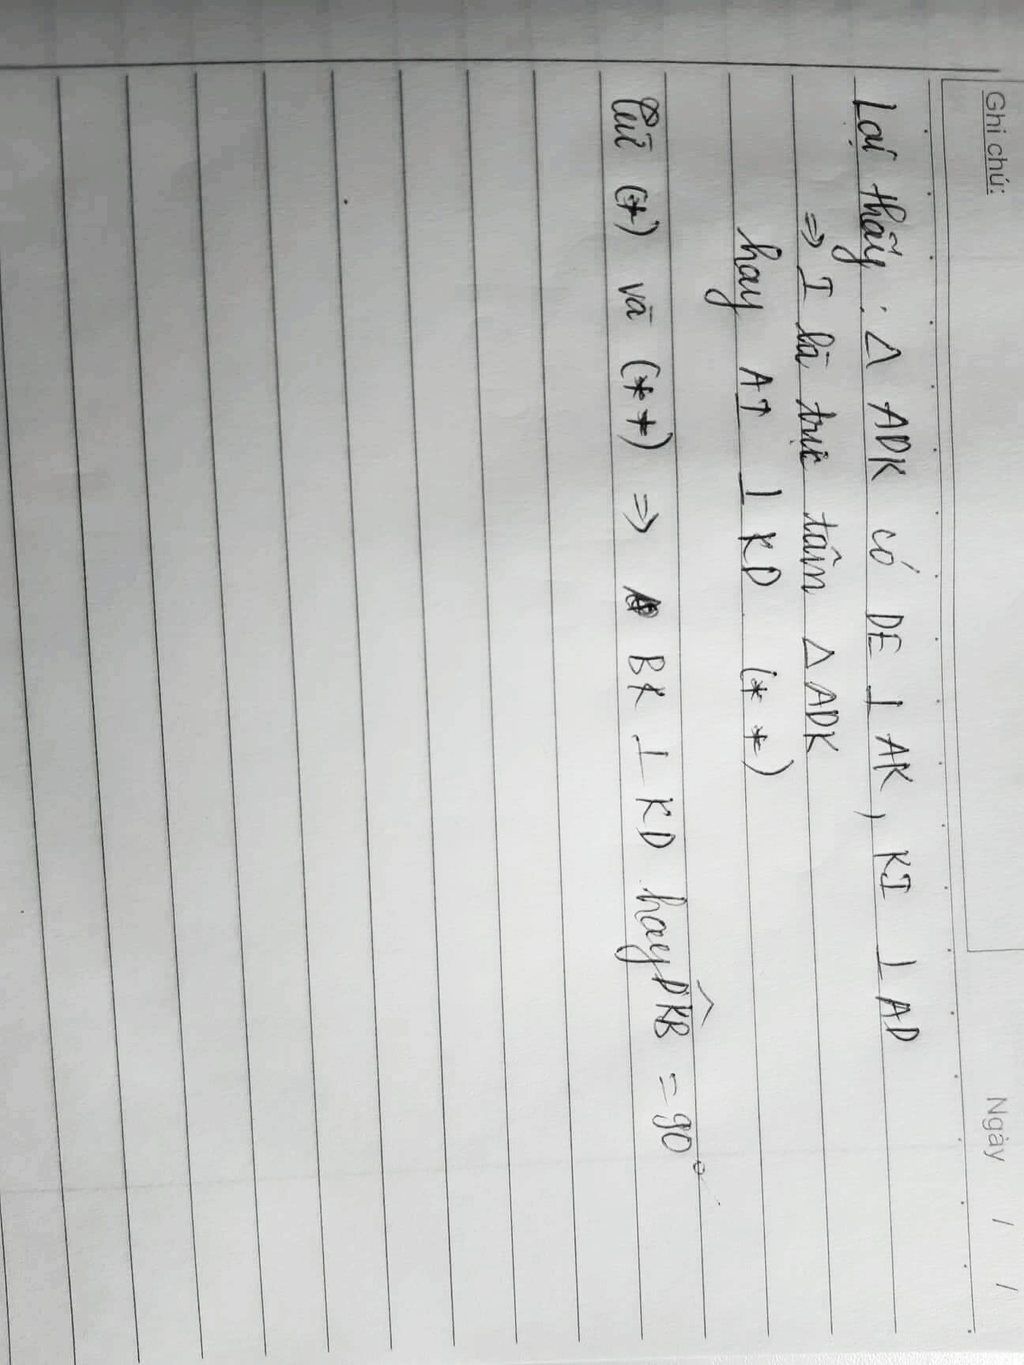 Ghi chú: Ngày / /
Lại thấy: Δ ADK có DE ⊥ AK, KI ⊥ AD
⇒ I là trực tâm Δ ADK
hay AI ⊥ KD (**)
Từ (*) và (**) ⇒ BK ⊥ KD hay \widehat{DKB} = 90°